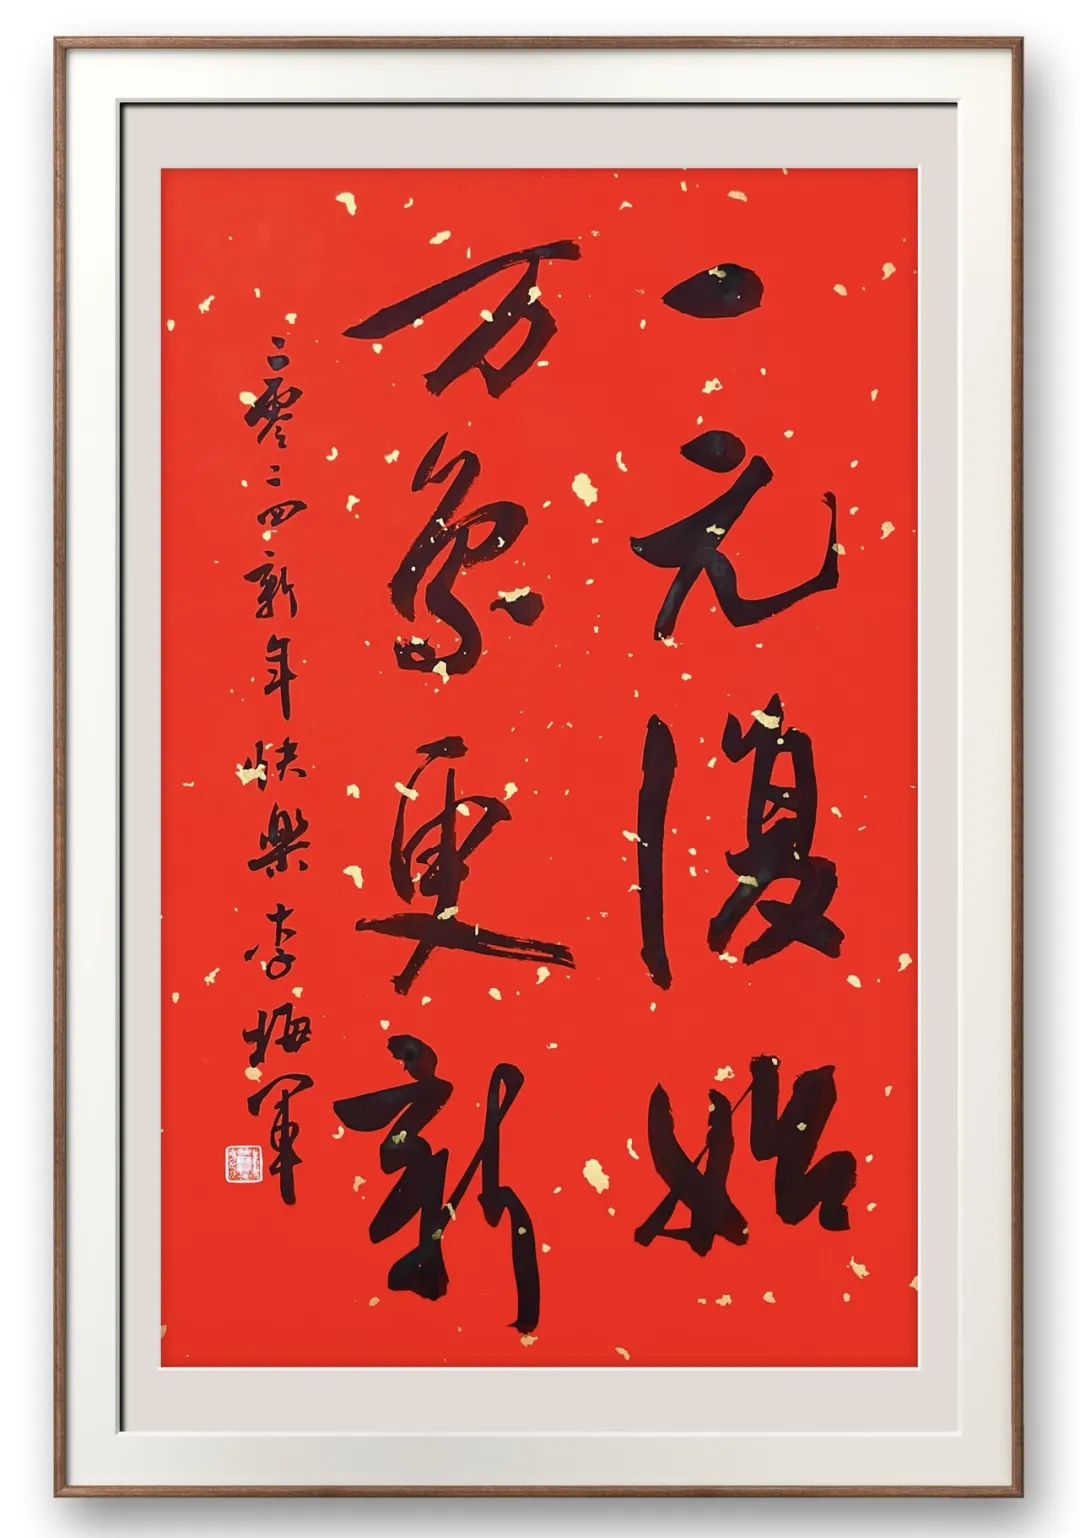 一元復始
万象更新
二零二四新年快樂 李梅军